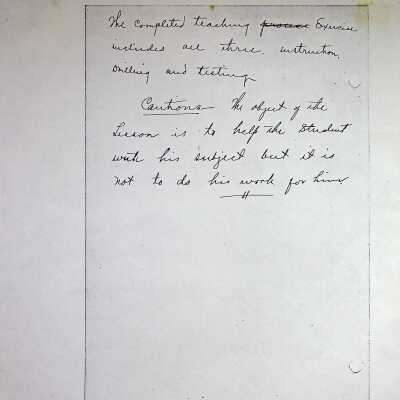 The completed teaching process Exercise
includes all three, instruction,
drilling and testing.
Cautions - The object of the
Lesson is to help the Student
with his subject but it is
not to do his work for him